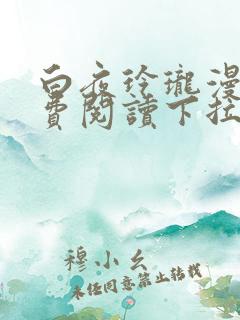 白夜玲瓏漫
費閱讀下拉
穆小幺
未经同意禁止转载